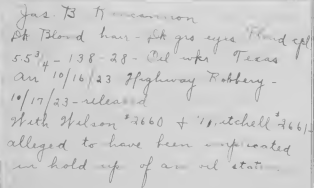 Jas B Kincannon
Dk Blond hair - Dk grs eyes Flond cpl
5.5 3/4 - 138 - 28 - Oil wkr Texas
Arr 10/16/23 Highway Robbery -
10/17/23 - released
With Wilson #2660 + Mitchell #2661
alleged to have been implicated
in hold up of an oil stat